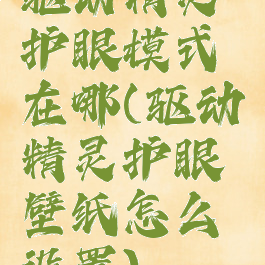 驱动精灵
护眼模式
在哪(驱动
精灵护眼
壁纸怎么
设置)